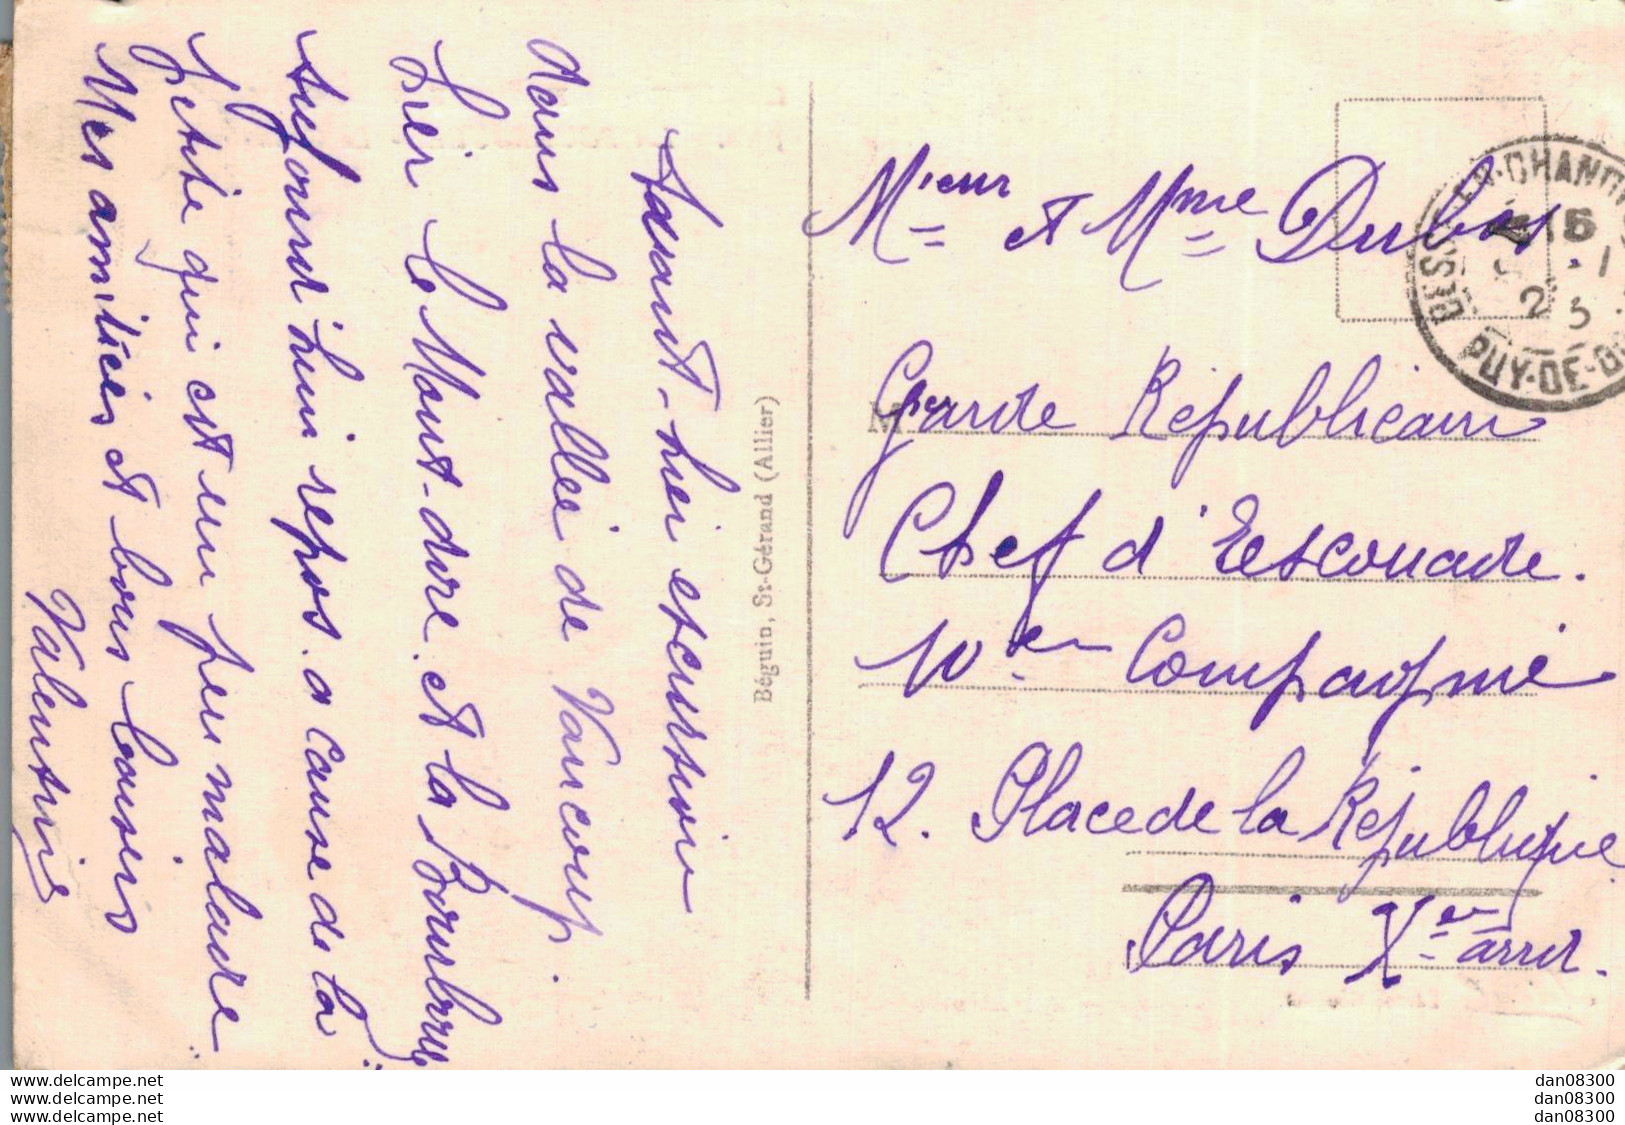 Avant-hier excursion
dans la vallée de Vaucoup.
hier le Mont-dore et la Bourboule
aujourd'hui repos a cause de la
petite qui est un peu malade
Mes amitiés et bons baisers
Valentin
Béguin, St-Gérand (Allier)
Mieur et Mme Dubois.
Garde Républicain
M
Chef d'Escouade.
10em Compagnie
12. Place de la République
Paris Xer arrd.
BESSE-EN-CHAND
15
-1
2 5
PUY-DE-DO
delcampe.net
delcampe.net
delcampe.net
dan08300
dan08300
dan08300